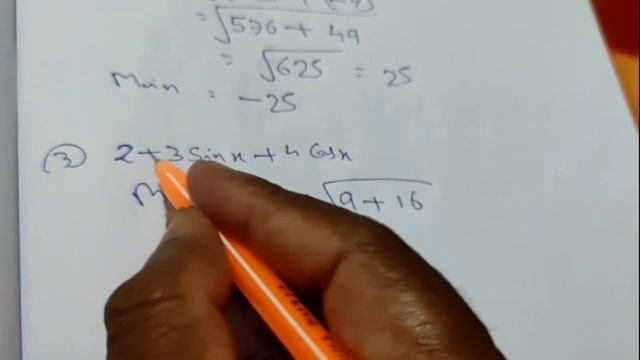 = √576 + 49
= √625 = 25
Min = -25
③ 2 + 3 Sin x + 4 Cos x
√9 + 16